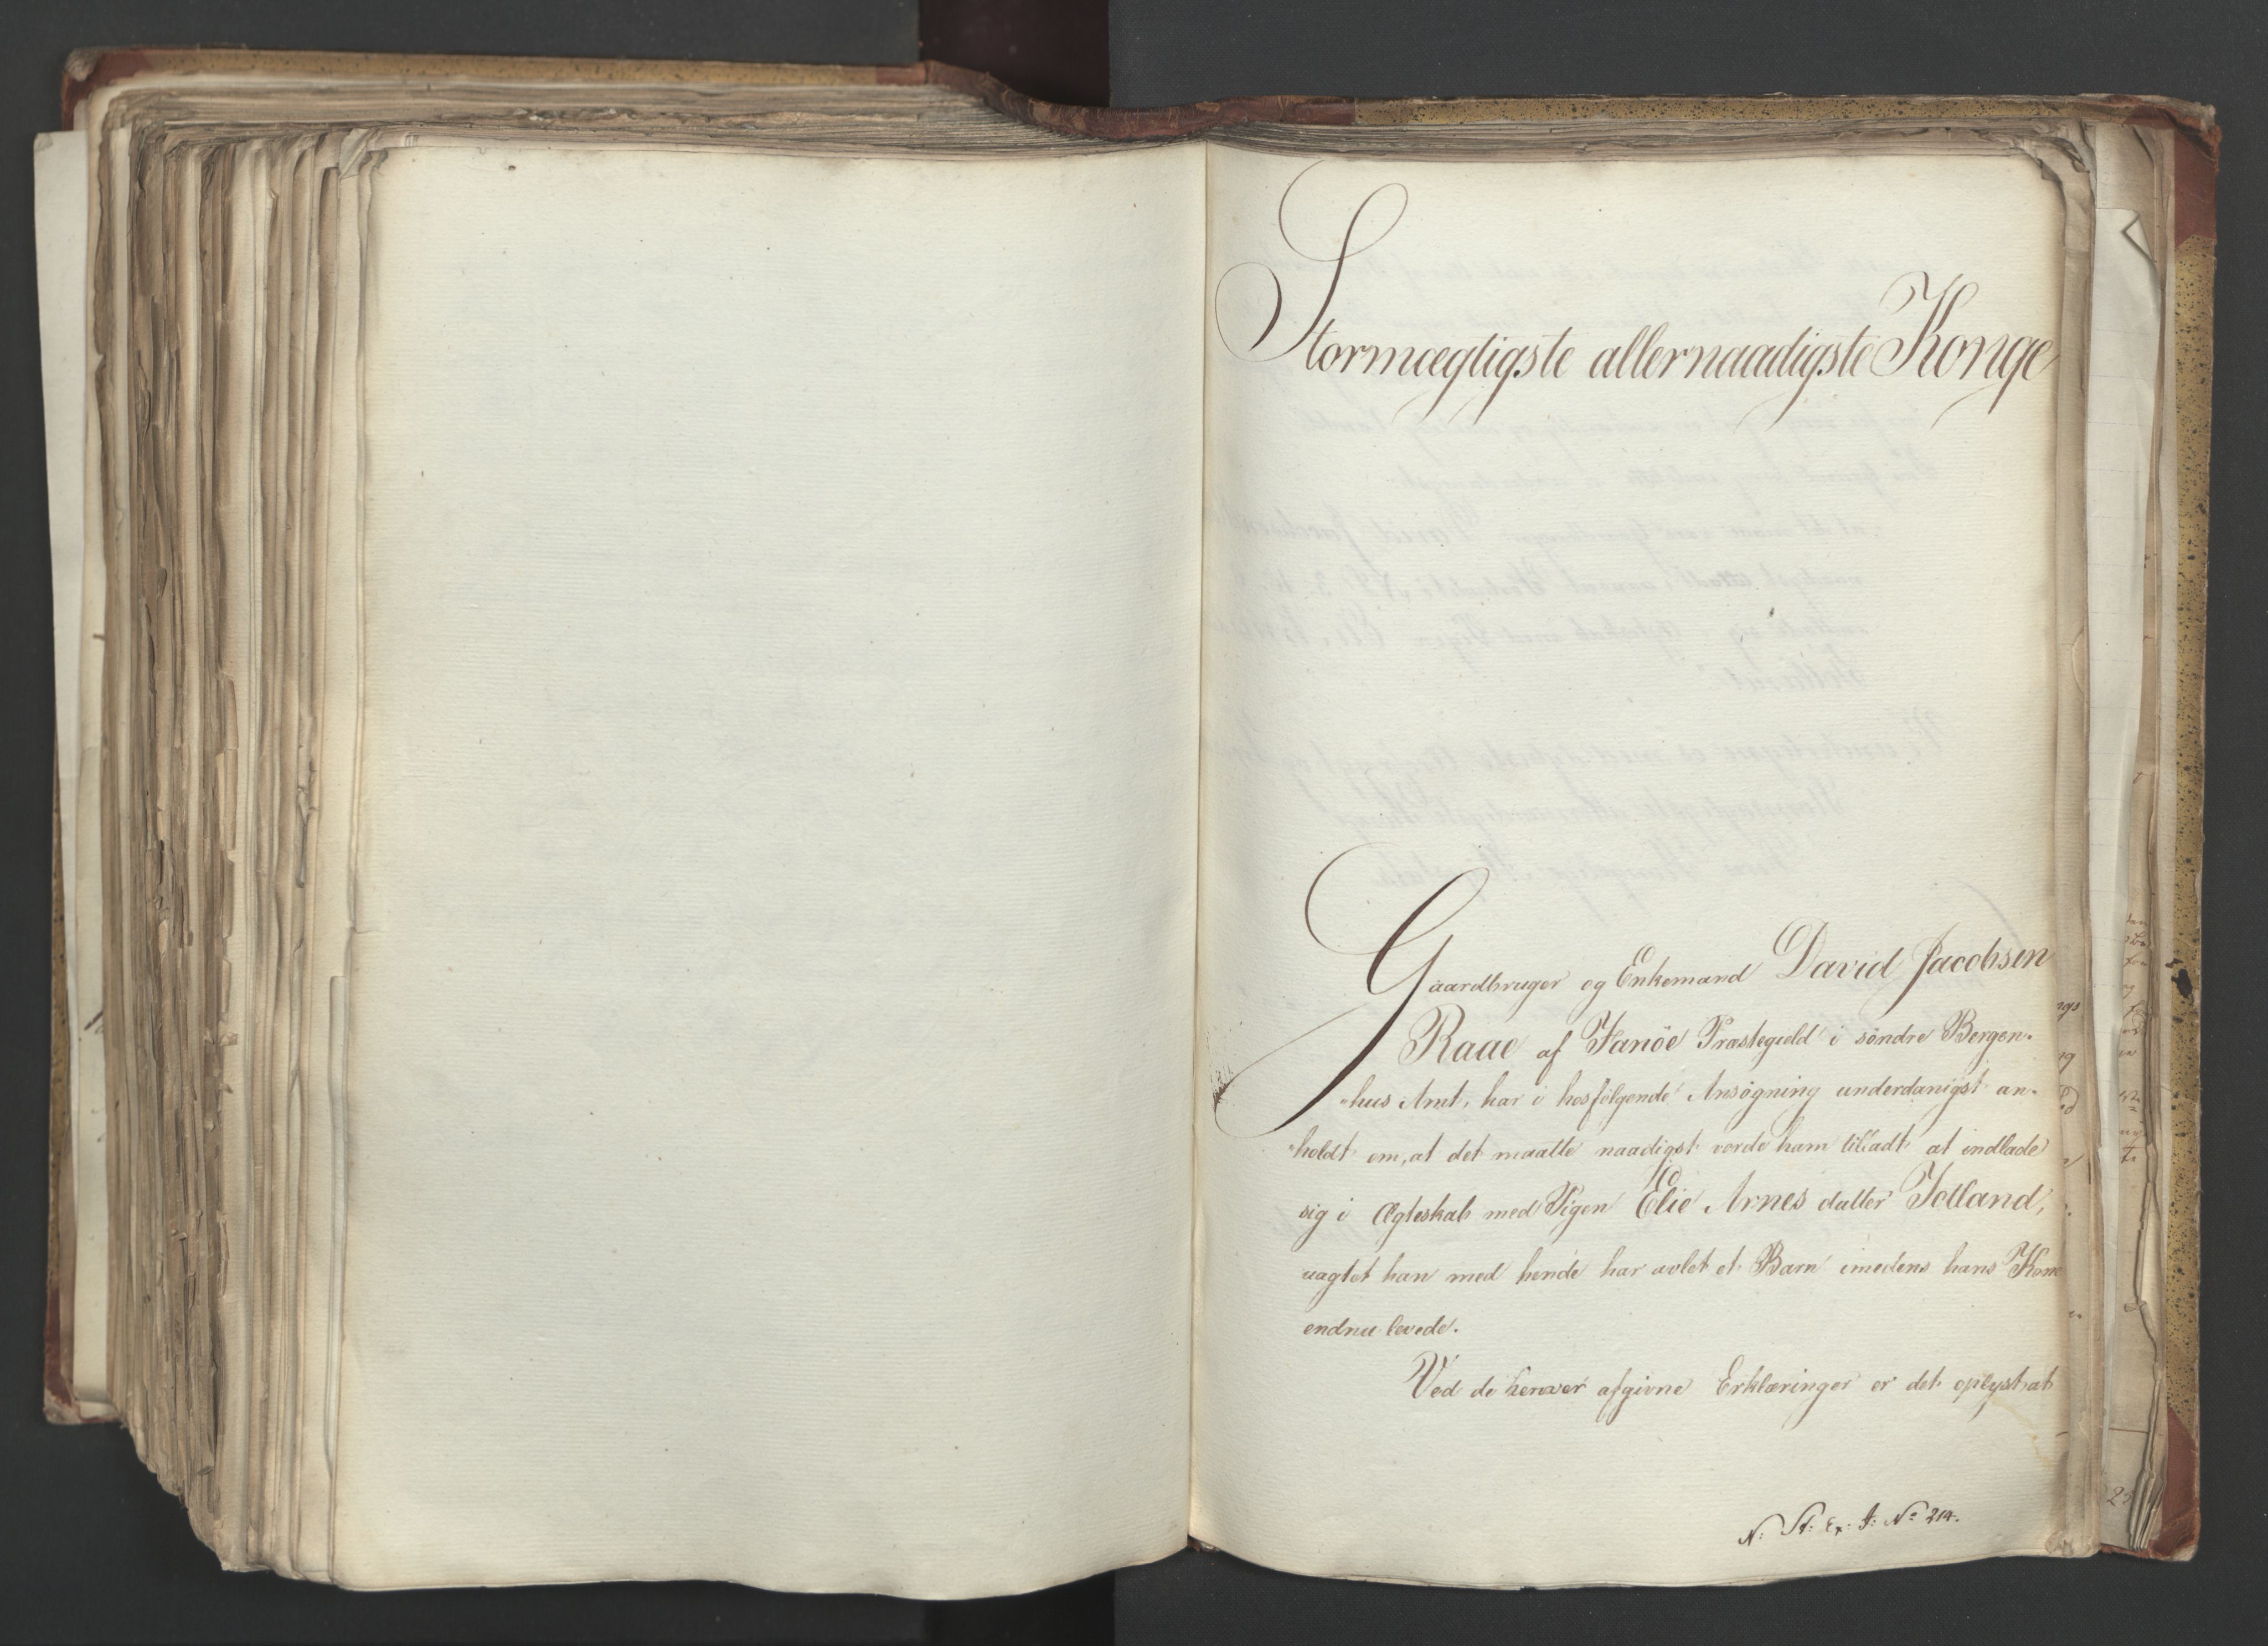 Stormægtigste allernaadigste Konge
Gaardbruger og Enkemand David Jacobsen
Raae af Fanöe Præstegield i söndre Bergen-
„hus Amt, har i hosfölgende Ansögning underdanigst an-
„holdt om, at det maatte naadigst vorde ham tilladt at indlade
sig i Ægteskab med Pigen Elie Arnes datter Totland,
uagtet han med hende har avlet et Barn imedens hans Kone
endnu levede.
Ved de herover afgivne Erklæringer er det oplyst at
N: St: Ex: J: No 214.